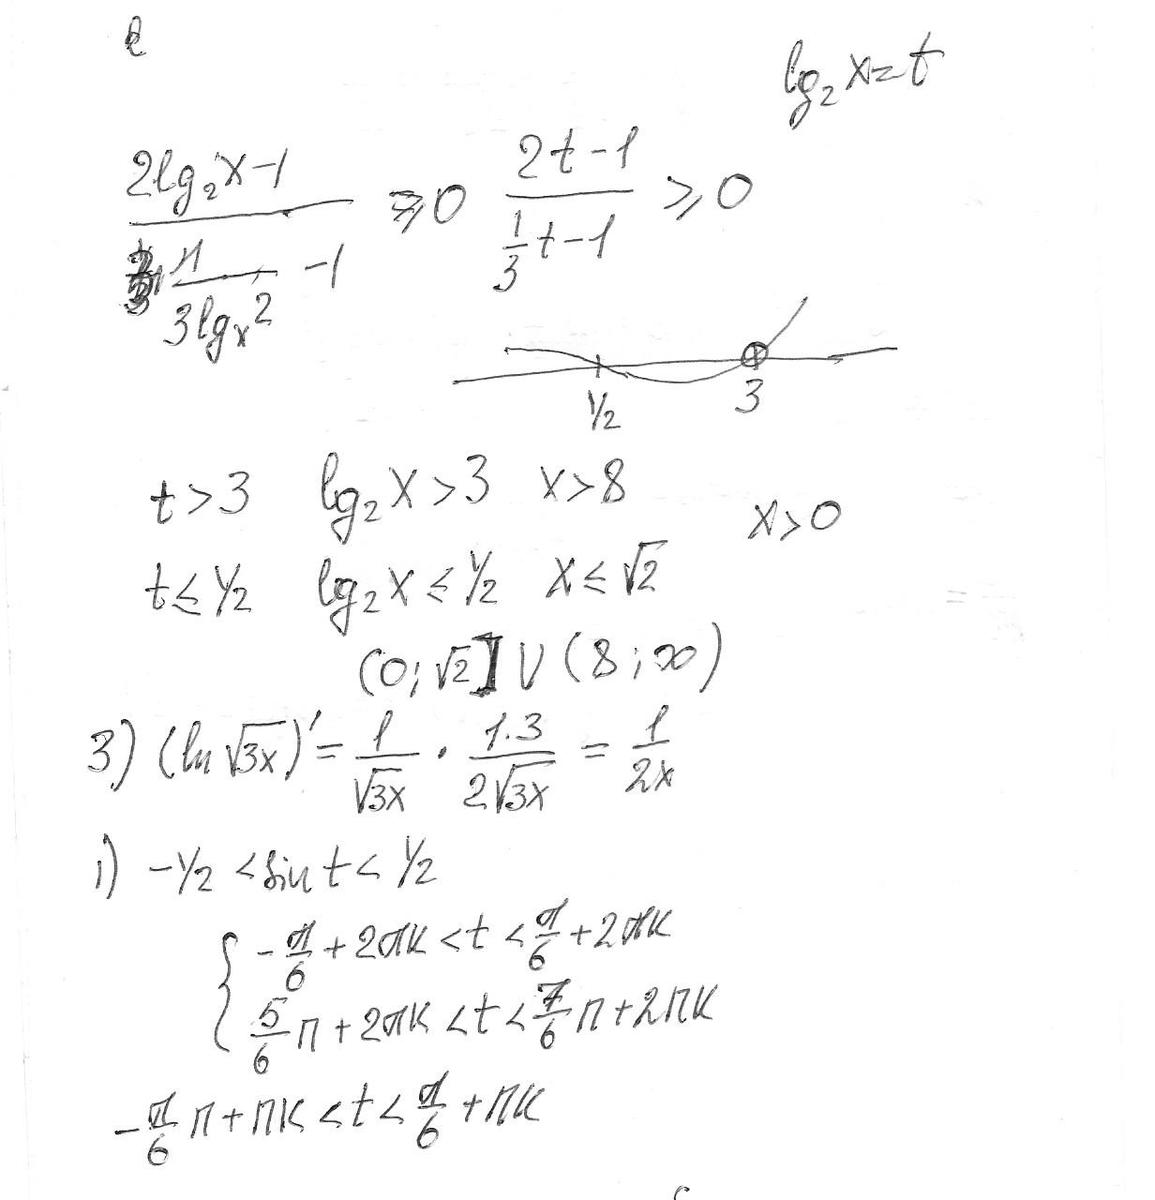 2
lg₂ x = t
(2lg₂x-1)/(1/(3lgₓ2) -1) ≥ 0  (2t-1)/(1/3 t-1) ≥ 0
1/2  3
t>3  lg₂x>3  x>8
x>0
t≤1/2  lg₂x≤1/2  x≤√2
(0;√2] U (8;∞)
3) (ln √3x)' = 1/√3x · 1·3/2√3x = 1/2x
1) -1/2 < sin t < 1/2
{ -π/6 + 2πk < t < π/6 + 2πk
5/6 π + 2πk < t < 7/6 π + 2πk
-π/6 π + πk < t < π/6 + πk